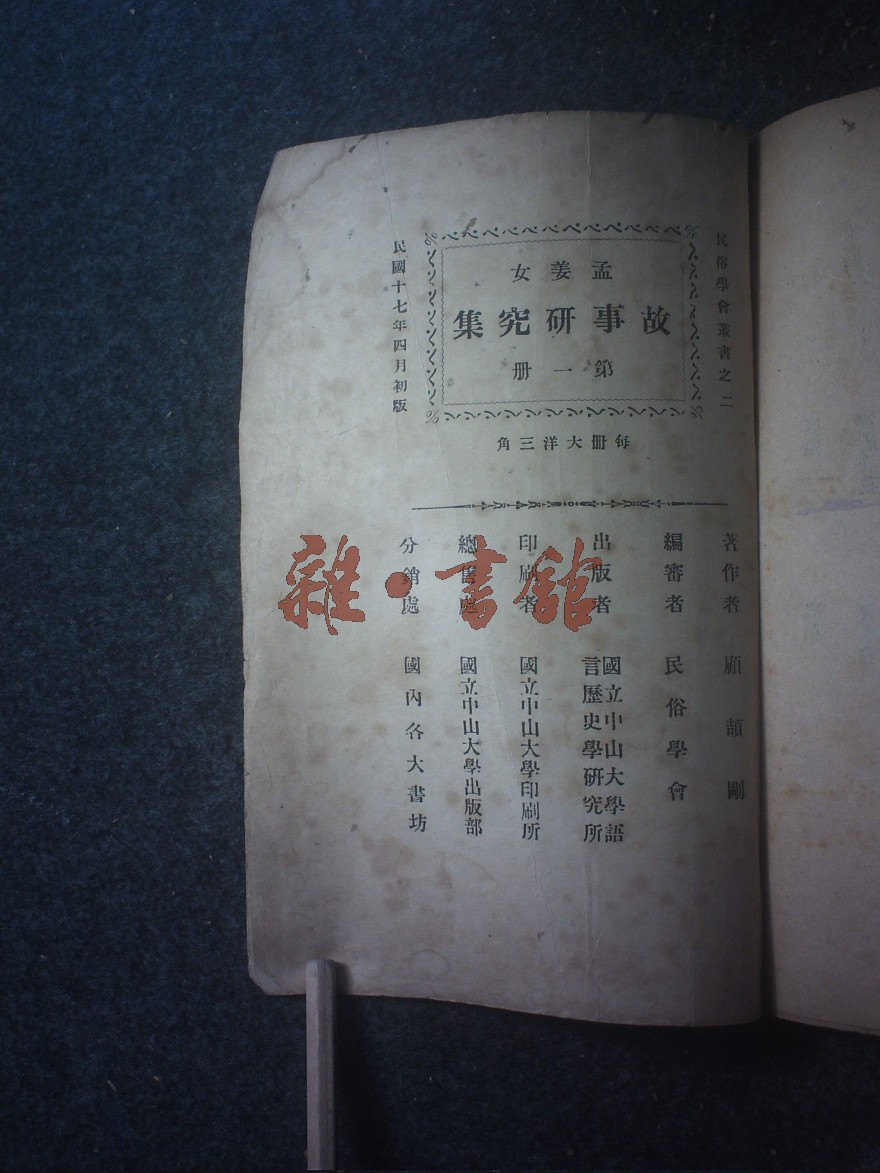 民俗學會叢書之二
孟姜女
故事研究集
第一册
民國十七年四月初版
每册大洋三角
著作者 顧頡剛
編審者 民俗學會
出版者 國立中山大學語言歷史學研究所
印刷者 國立中山大學印刷所
總售處 國立中山大學出版部
分銷處 國內各大書坊
雜·書館